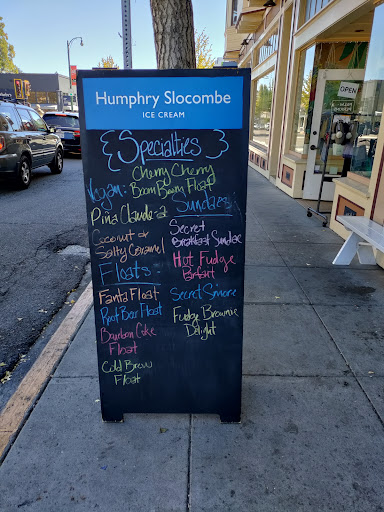 Humphry Slocombe
ICE CREAM
{Specialties}
Cherry Cherry
Vegan: Boom Boom Float
Piña Claude-a
Coconut or
Salty Caramel
Floats
Fanta Float
Root Bar Float
Bourbon Coke
Float
Cold Brew
Float
Sundaes
Secret
Breakfast Sundae
Hot Fudge
Parfait
Secret S'more
Fudgy Brownie
Delight
OPEN